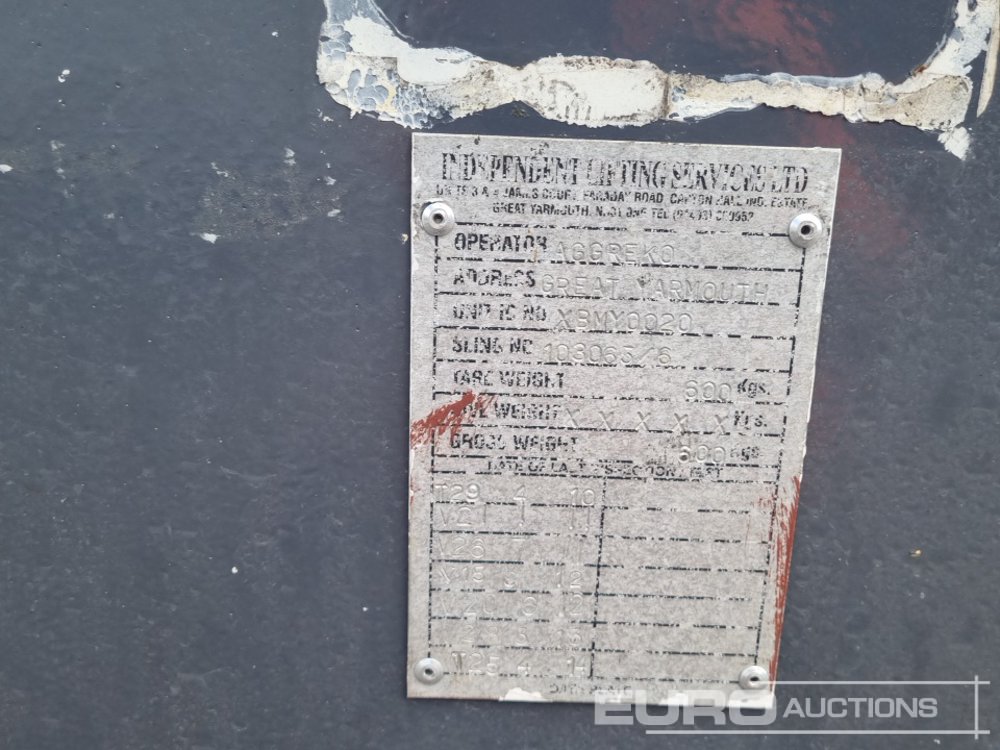 INDEPENDENT LIFTING SERVICES LTD
UNITS 3 & 4 JAMES COURT, FARADAY ROAD, GAPTON HALL IND. ESTATE
GREAT YARMOUTH, TEL
OPERATOR AGGREKO
ADDRESS GREAT YARMOUTH
UNIT ID NO XBMY0020
SLING NO 103065/6
TARE WEIGHT 600 Kgs.
WEIGHT X X X X X Kgs.
GROSS WEIGHT 600 Kgs
DATE OF LAST INSPECTION/TEST
T29 4 10
V21 1 11
V26 7
12
V20 6 12
3
T25 4 14
EURO AUCTIONS